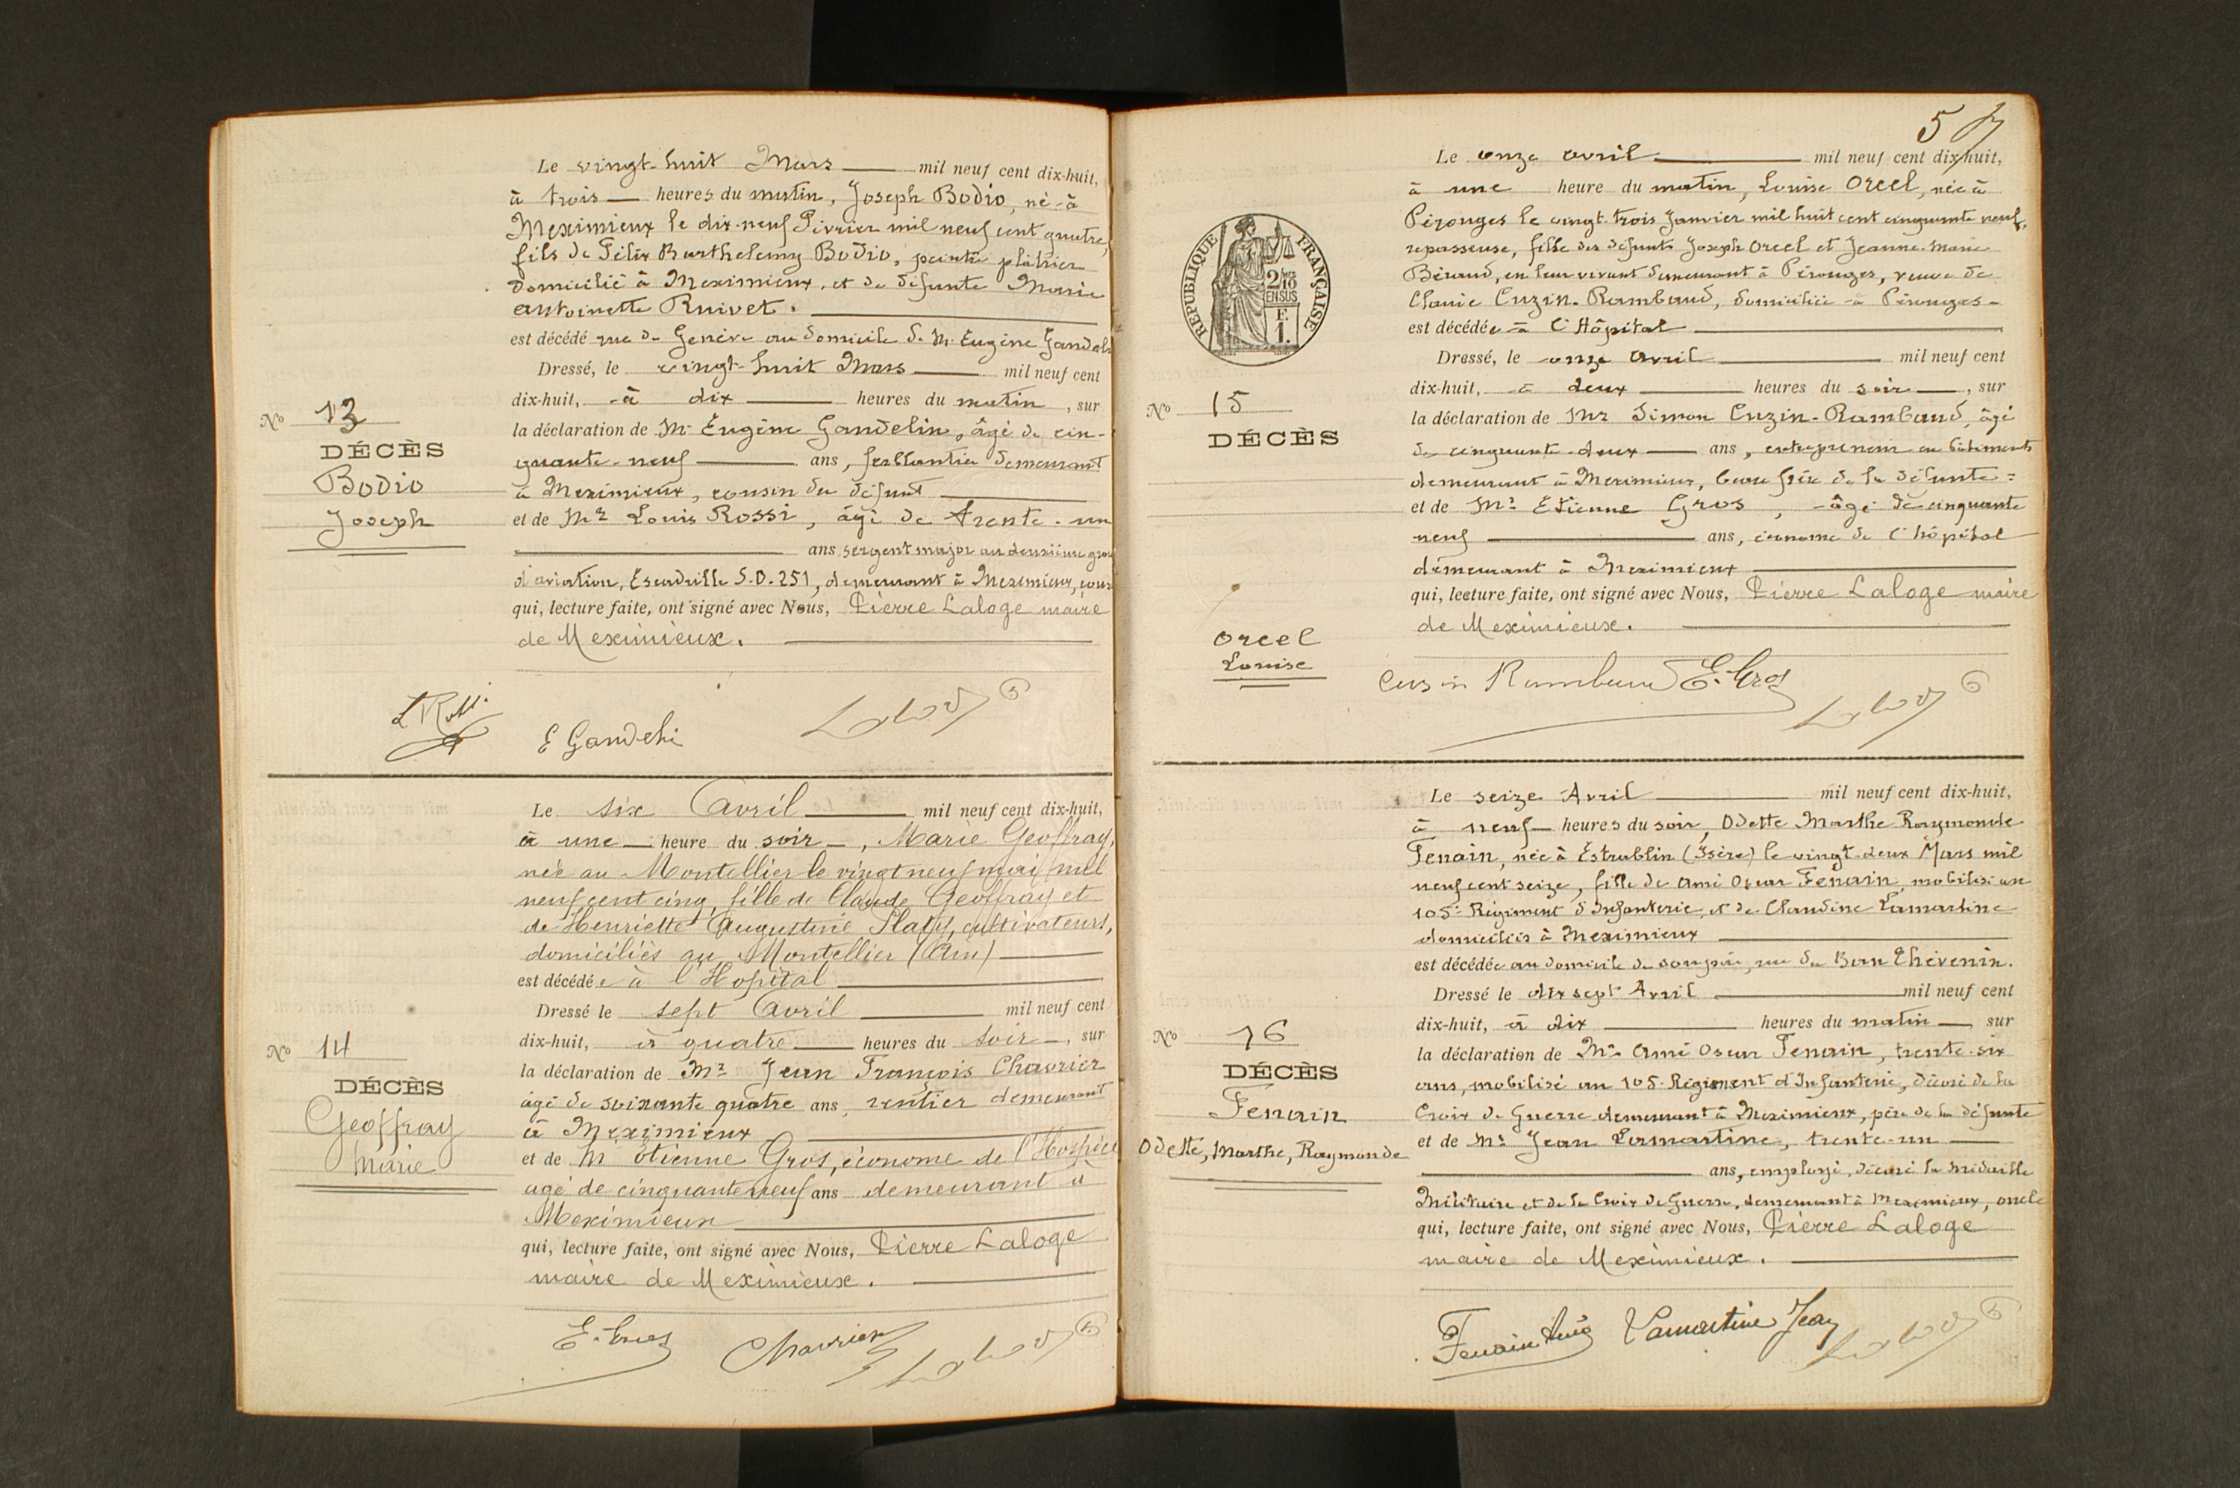 Le vingt-huit Mars mil neuf cent dix-huit,
à trois heures du matin, Joseph Bodio, né à
Meximieux le dix-neuf Février mil neuf cent quatre,
fils de Félix Barthelemy Bodio, peintre plâtrier
domicilié à Meximieux, et de défunte Marie
antoinette Ruivet.
est décédé rue de Genève au domicile de Mr. Eugène Gandelin
Dressé, le vingt-huit Mars mil neuf cent
dix-huit, à dix heures du matin, sur
la déclaration de Mr Eugène Gandelin, âgé de cin-
quante-neuf ans, ferblantier demeurant
à Meximieux, cousin du défunt
et de Mr Louis Rossi, âgé de trente-un
ans, sergent major au deuxième
d'aviation, Escadrille S.O. 251, demeurant à Meximieux,
qui, lecture faite, ont signé avec Nous, Pierre Laloge maire
de Meximieux.
No 13
DÉCÈS
Bodio
Joseph
L Rossi
E Gandelin
Laloge
Le six Avril mil neuf cent dix-huit,
à une heure du soir, Marie Geoffray,
née au Montellier le vingt neuf mai mil
neuf cent cinq, fille de Claude Geoffray et
de Henriette Augustine Platy, cultivateurs,
domiciliés au Montellier (Ain)
est décédée à l'Hopital
Dressé le sept Avril mil neuf cent
dix-huit, à quatre heures du soir, sur
la déclaration de Mr Jean François Chavrier
agé de soixante quatre ans, rentier demeurant
à Meximieux
et de Mr Etienne Gros, économe de l'Hospice
agé de cinquante neuf ans demeurant à
Meximieux
qui, lecture faite, ont signé avec Nous, Pierre Laloge
maire de Meximieux.
No 14
DÉCÈS
Geoffray
Marie
E. Gros
Chavrier
Laloge
5
Le onze avril mil neuf cent dix-huit,
à une heure du matin, Louise Orcel, née à
Pérouges le vingt-trois Janvier mil huit cent cinquante neuf,
repasseuse, fille des défunts Joseph Orcel et Jeanne-Marie
Béraud, en leur vivant demeurant à Pérouges, veuve de
Cuzin-Rambaud, domiciliée à Pérouges
est décédée à l'Hôpital
Dressé, le onze avril mil neuf cent
dix-huit, à deux heures du soir, sur
la déclaration de Mr Simon Cuzin-Rambaud, âgé
de cinquante-deux ans, entrepreneur en bâtiments
demeurant à Meximieux, beau frère de la défunte
et de Mr Etienne Gros, âgé de cinquante
neuf ans, économe de l'hôpital
demeurant à Meximieux
qui, lecture faite, ont signé avec Nous, Pierre Laloge maire
de Meximieux.
RÉPUBLIQUE FRANÇAISE
2/10 EN SUS
F. 1.
No 15
DÉCÈS
Orcel
Louise
Cuzin Rambaud E. Gros
Laloge
Le seize Avril mil neuf cent dix-huit,
à neuf heures du soir, Odette Marthe Raymonde
Fenain, née à Estrablin (Isère) le vingt-deux Mars mil
neuf cent seize, fille de Amé Oscar Fenain, mobilisé au
105e Régiment d'Infanterie, et de Claudine Lamartine
domiciliés à Meximieux
est décédée au domicile de son père, rue du Bon Thévenin.
Dressé le dix sept Avril mil neuf cent
dix-huit, à dix heures du matin sur
la déclaration de Mr Amé Oscar Fenain, trente-six
ans, mobilisé au 105e Régiment d'Infanterie, décoré de la
Croix de Guerre demeurant à Meximieux, père de la défunte
et de Mr Jean Lamartine, trente-un
ans, employé, décoré la médaille
Militaire et de la Croix de Guerre, demeurant à Meximieux, oncle
qui, lecture faite, ont signé avec Nous, Pierre Laloge
maire de Meximieux.
No 16
DÉCÈS
Fenain
Odette, Marthe, Raymonde
Fenain Amé Lamartine Jean
Laloge